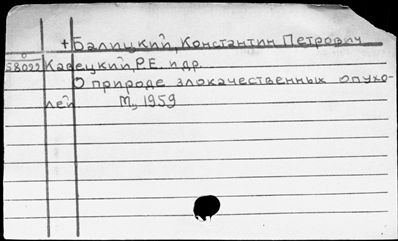 + Балицкий, Константин Петрович
58099 Кавецкий, Р.Е. и др.
О природе злокачественных опухо-
лей М., 1959